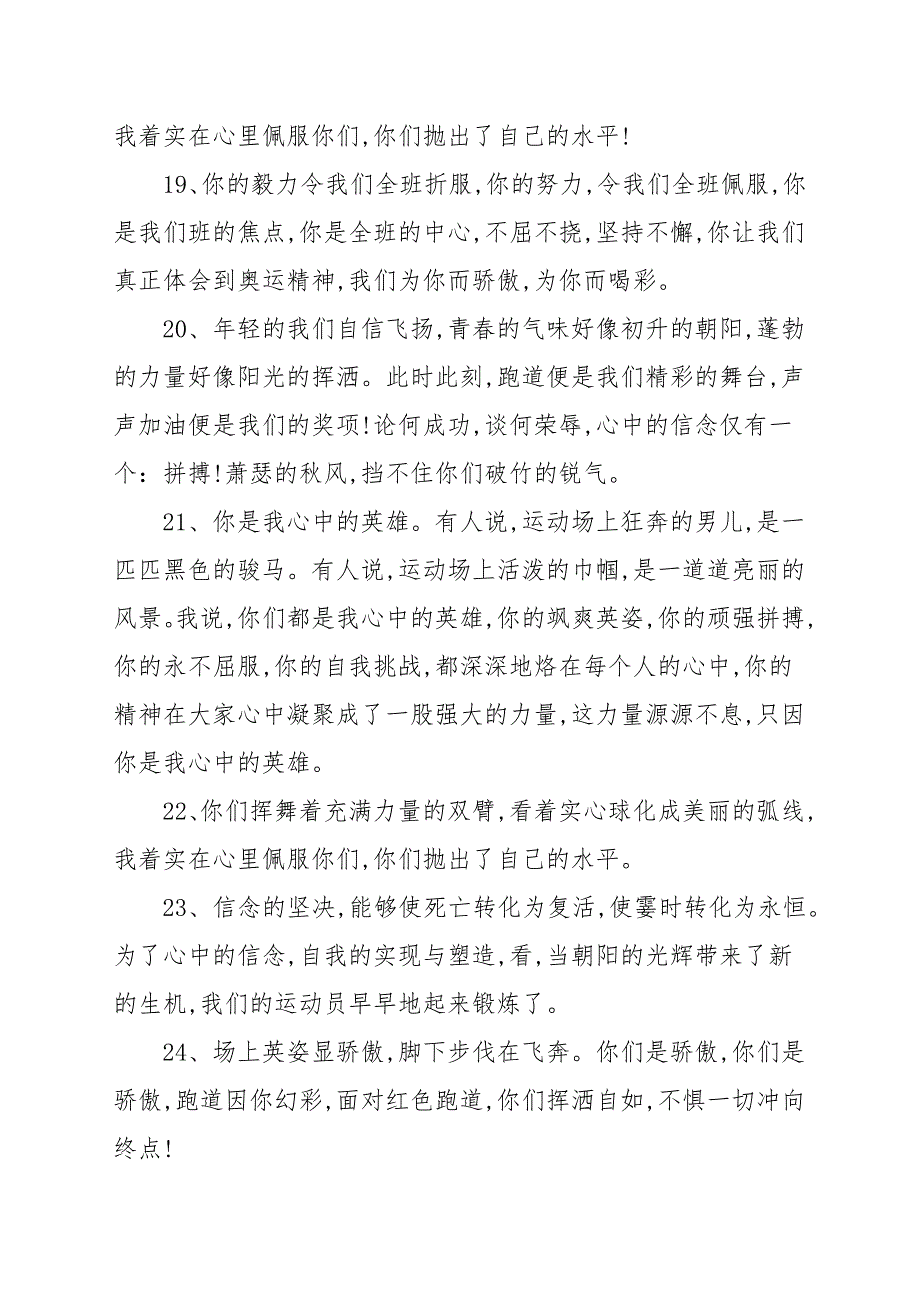 我着实在心里佩服你们,你们抛出了自己的水平!
19、你的毅力令我们全班折服,你的努力,令我们全班佩服,你
是我们班的焦点,你是全班的中心,不屈不挠,坚持不懈,你让我们
真正体会到奥运精神,我们为你而骄傲,为你而喝彩。
20、年轻的我们自信飞扬,青春的气味好像初升的朝阳,蓬勃
的力量好像阳光的挥洒。此时此刻,跑道便是我们精彩的舞台,声
声加油便是我们的奖项!论何成功,谈何荣辱,心中的信念仅有一
个：拼搏!萧瑟的秋风,挡不住你们破竹的锐气。
21、你是我心中的英雄。有人说,运动场上狂奔的男儿,是一
匹匹黑色的骏马。有人说,运动场上活泼的巾帼,是一道道亮丽的
风景。我说,你们都是我心中的英雄,你的飒爽英姿,你的顽强拼搏,
你的永不屈服,你的自我挑战,都深深地烙在每个人的心中,你的
精神在大家心中凝聚成了一股强大的力量,这力量源源不息,只因
你是我心中的英雄。
22、你们挥舞着充满力量的双臂,看着实心球化成美丽的弧线,
我着实在心里佩服你们,你们抛出了自己的水平。
23、信念的坚决,能够使死亡转化为复活,使霎时转化为永恒。
为了心中的信念,自我的实现与塑造,看,当朝阳的光辉带来了新
的生机,我们的运动员早早地起来锻炼了。
24、场上英姿显骄傲,脚下步伐在飞奔。你们是骄傲,你们是
骄傲,跑道因你幻彩,面对红色跑道,你们挥洒自如,不惧一切冲向
终点!